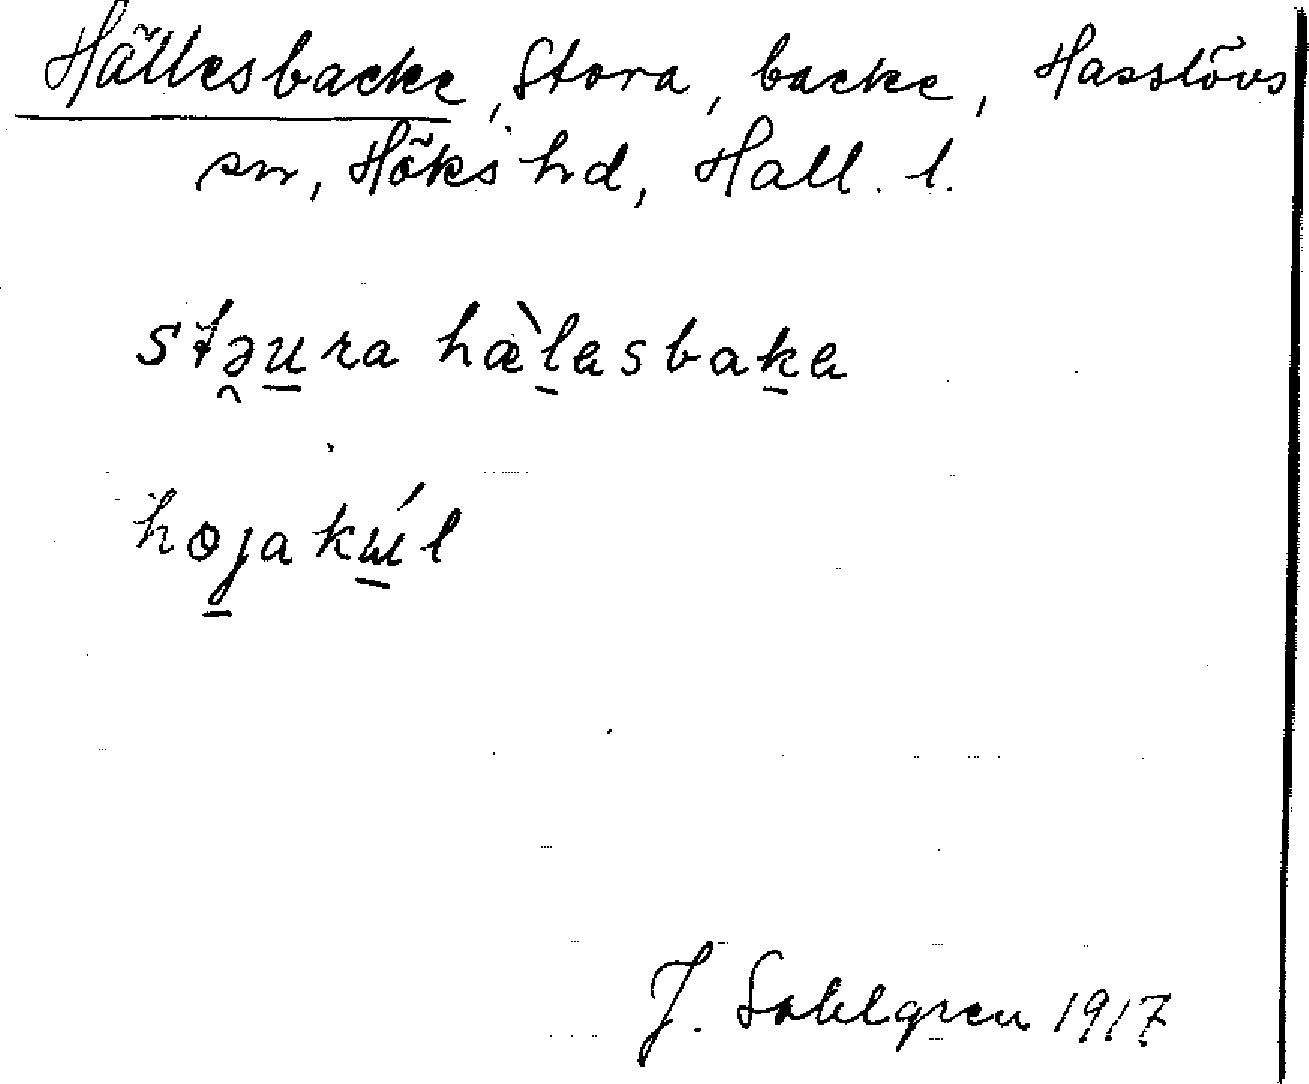 Hällesbacke, Stora, backe, Hasslövs
sn, Höks hd, Hall. l.
stə̯u̠ra hæ̀l̠asbak̠a
hɵj̠akɯ̠́l
J. Sahlgren 1917